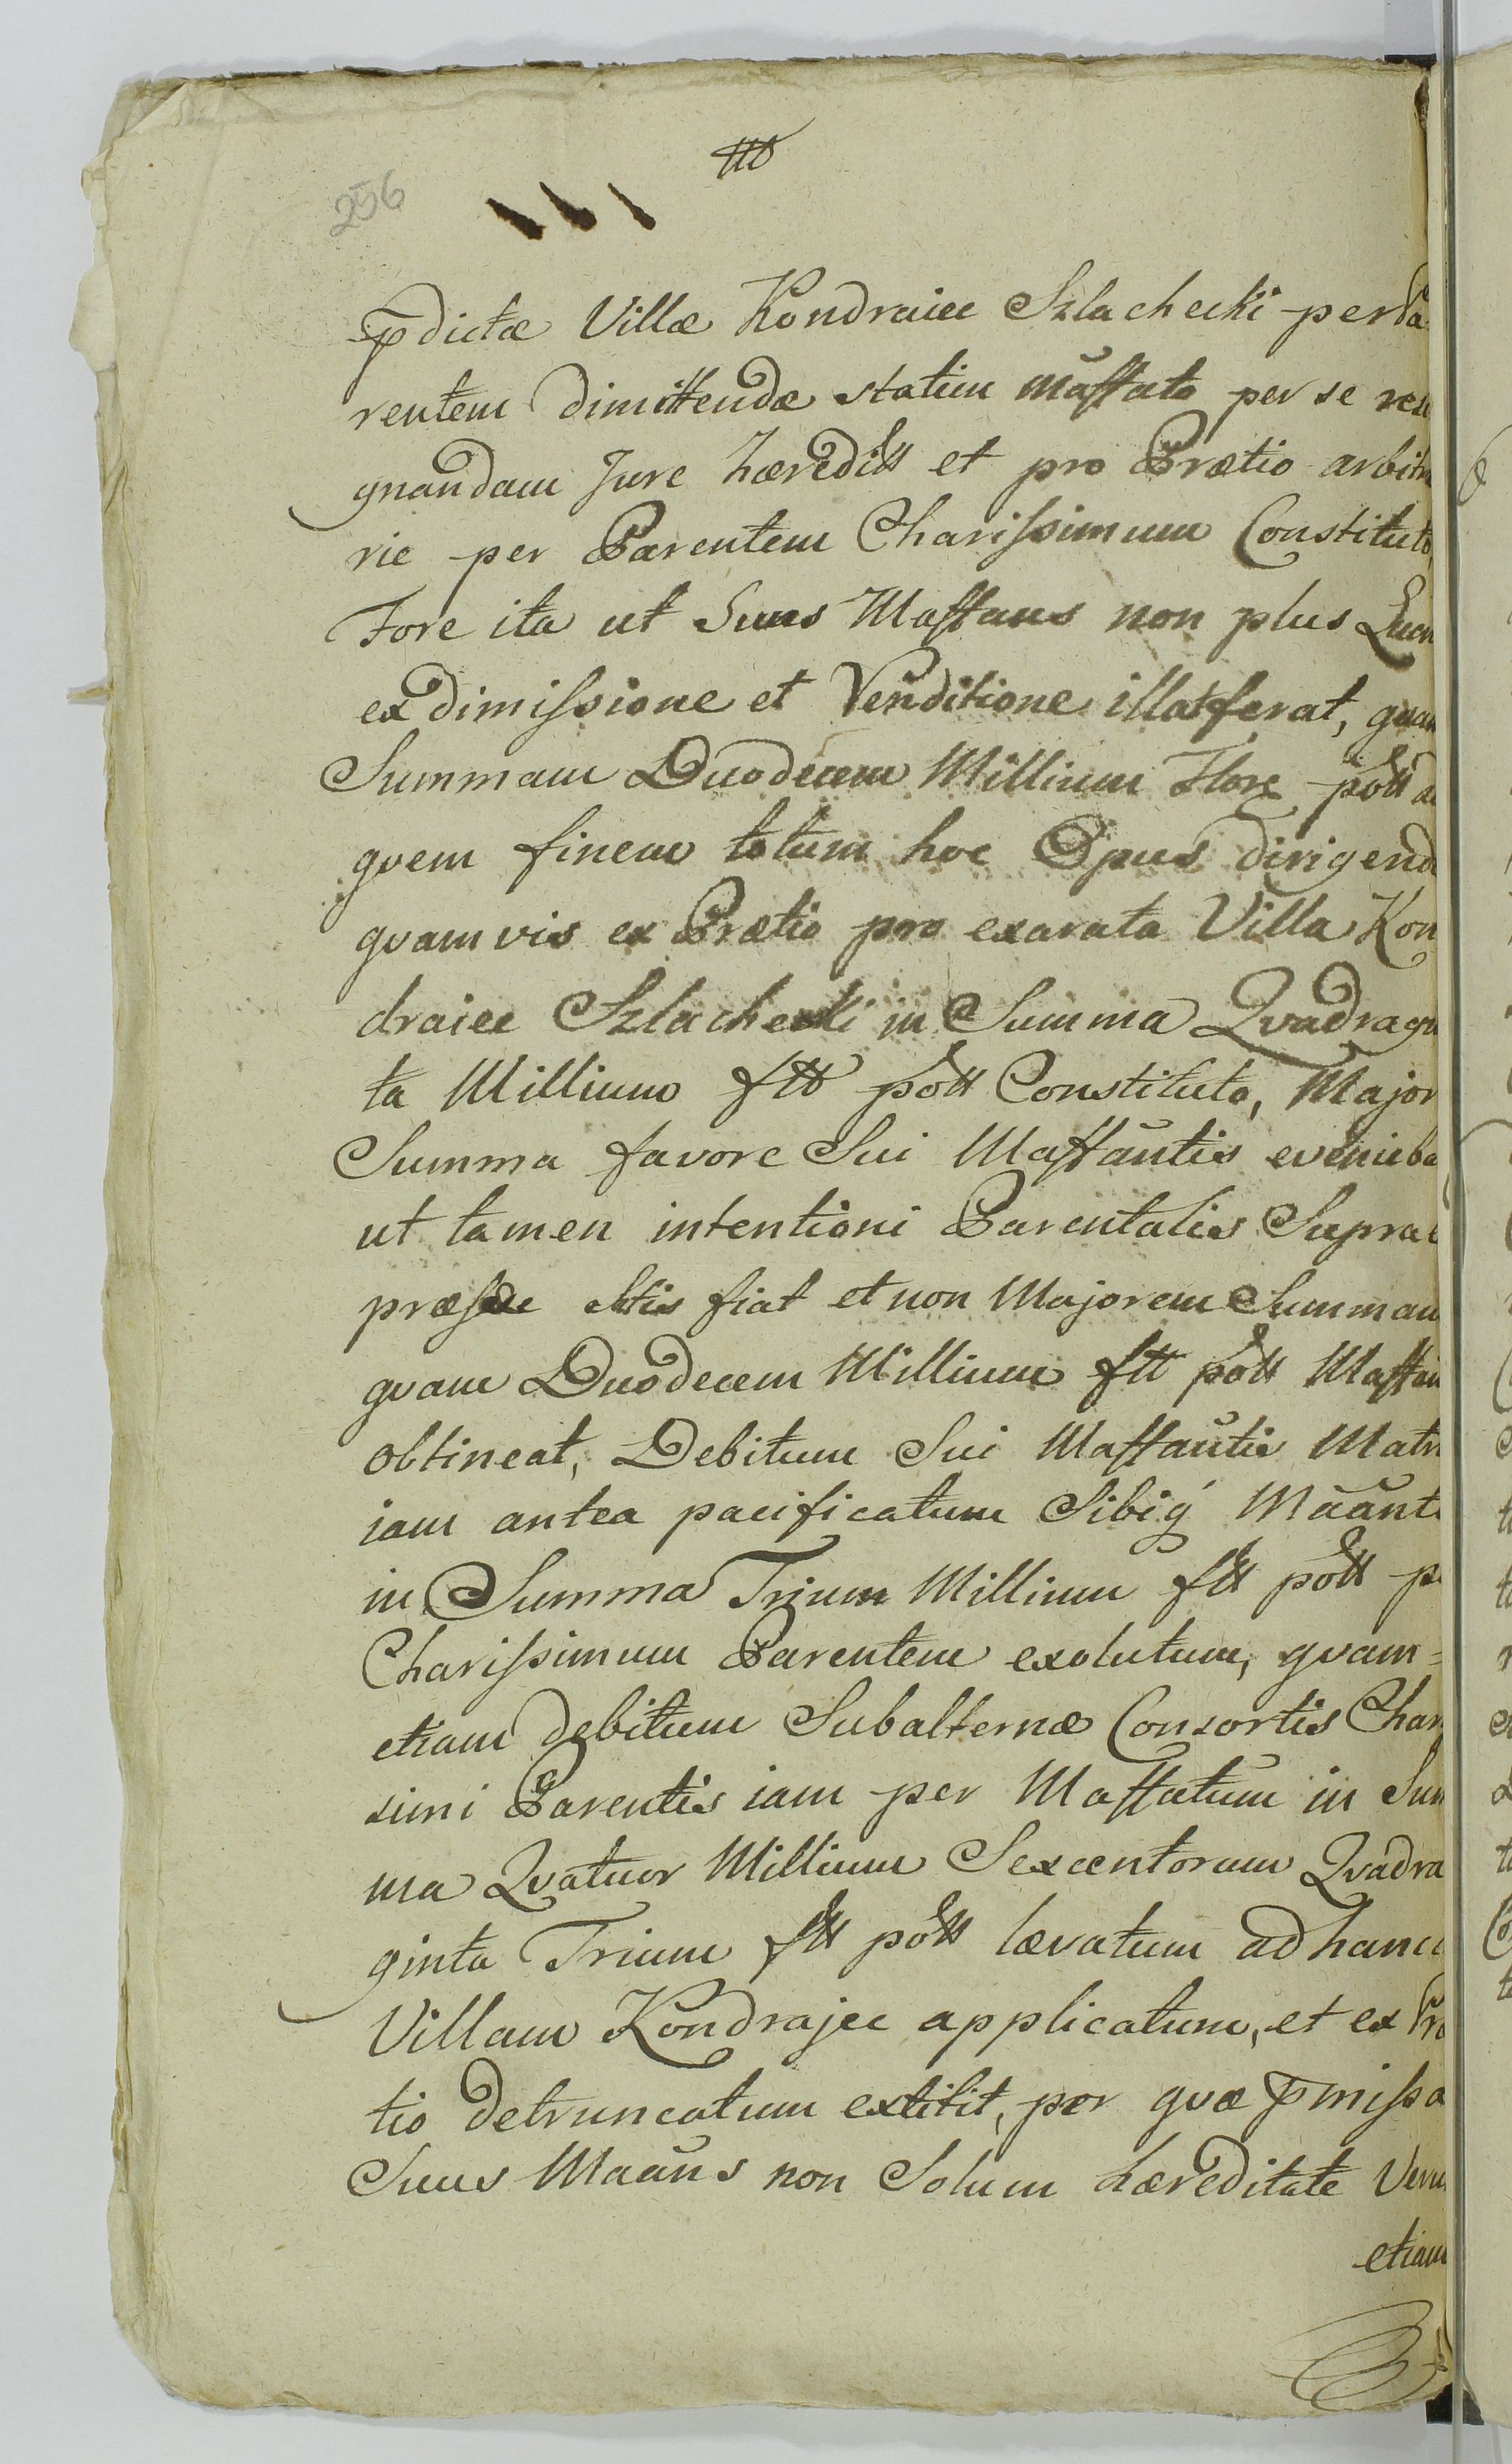 256
p̄dictæ Villæ Kondraiec Szlachecki per Pa
rentem dimittendæ statim Maffato per se resi
gnandam Jure hæreditt et pro Prætio arbitra
rie per Parentem Charissimum Constituto
Fore ita ut Suus Maffans non plus Lucri
ex dimissione et Venditione illa ferat, quam
Summam Duodecem Millium Flor. pött ad
qvem finem totum hoc Opus dirigendo
qvamvis ex Prætio pro exarata Villa Kon
draiec Szlachecki in Summa Qvadragin
ta Millium ftt pött Constituto, Major
Summa favore Sui Maffantis eveniebat
ut tamen intentioni Parentalis Supra
fiat et non Majorem Summam
qvam Duodecem Millium ftt pött Maffans
obtineat, Debitum Sui Maffantis Matri
iam antea pacificatum Sibiq́ Mäanti
in Summa Trium Millium ftt pött per
Charissimum Parentem exolutum, qvam=
etiam debitum Subalternæ Consortis Charis
simi Parentis iam per Maffatum in Sum
ma Qvatuor Millium Sexcentorum Qvadra
ginta Trium ftt pött lævatum ad hanc
Villam Kondrajec applicatum, et ex Præ
tio detruncatum extitit, per qvæ p̄missa
Suus Maäns non Solum hæreditate Verum
etiam